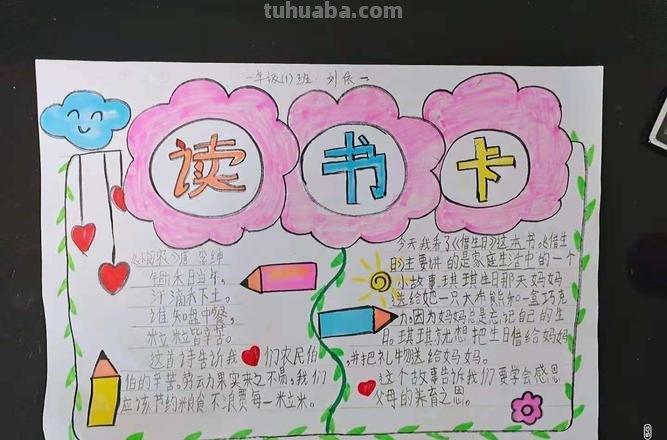 tuhuaba.com
一年级(1)班：刘依一
读书卡
《小悯农》唐 李绅
锄禾日当午。
汗滴禾下土。
谁知盘中餐，
粒粒皆辛苦。
这首诗告诉我们农民伯
伯的辛苦。劳动力果实来之不易。我们
应该节约粮食不浪费每一米立米。
今天我看了《借生日》这本书。《借生
日》主要讲的是家庭生活中的一个
小故事琪琪生日那天妈妈
送给她一只大布熊和一盒巧克
力。因为妈妈总是忘记自己的生
日。琪琪就想把生日借给妈妈
,并把礼物送给妈妈。
这个故事告诉我们要学会感恩
父母的养育之恩。